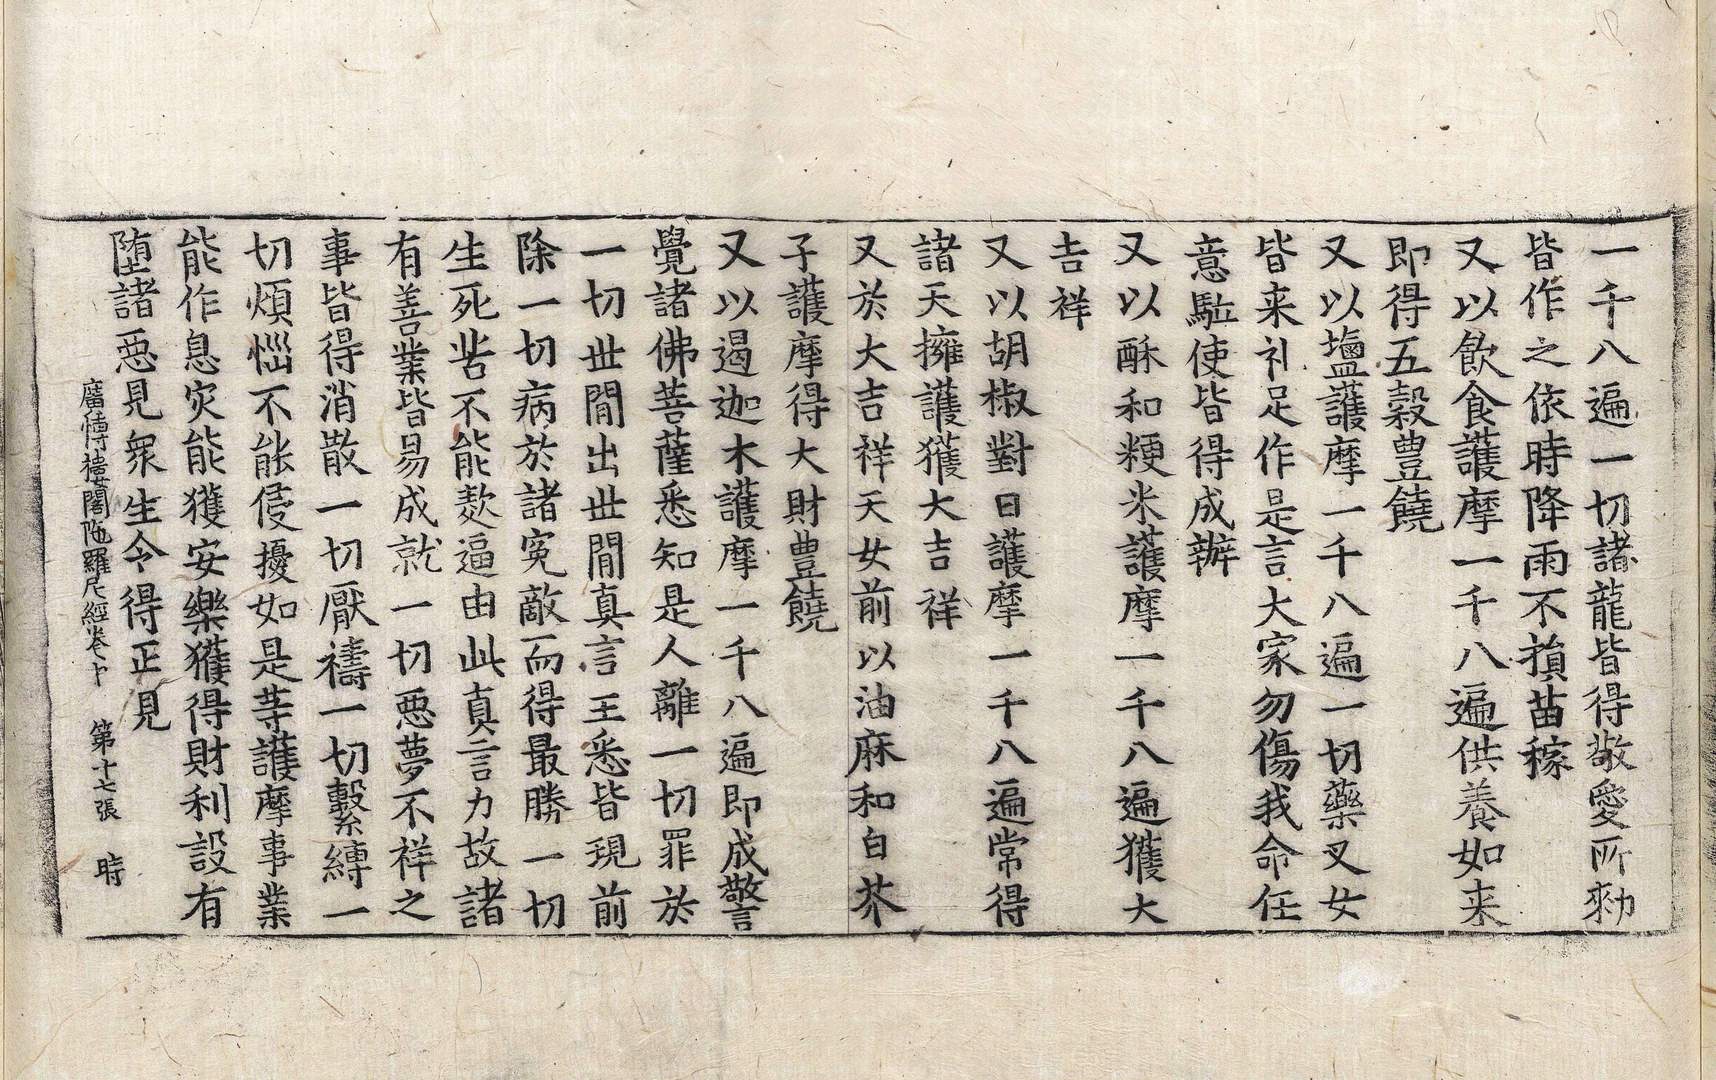 一千八遍一切諸龍皆得敬愛所勑
皆作之依時降雨不損苗稼
又以飲食護摩一千八遍供養如来
即得五穀豊饒
又以塩護摩一千八遍一切藥叉女
皆来礼足作是言大家勿傷我命任
意駈使皆得成辦
又以酥和粳米護摩一千八遍獲大
吉祥
又以胡椒對日護摩一千八遍常得
諸天擁護獲大吉祥
又於大吉祥天女前以油麻和白芥
子護摩得大財豊饒
又以遏迦木護摩一千八遍即成警
覺諸佛菩薩悉知是人離一切罪於
一切世間出世間真言王悉皆現前
除一切病於諸寃敵而得最勝一切
生死苦不能逼由此真言力故諸
有善業皆易成就一切悪夢不祥之
事皆得消散一切厭禱一切繫縛一
切煩惱不能侵擾如是等護摩事業
能作息灾能獲安樂獲得財利設有
堕諸悪見衆生令得正見
廣博樓閣陁羅尼經卷中 第十七張 時